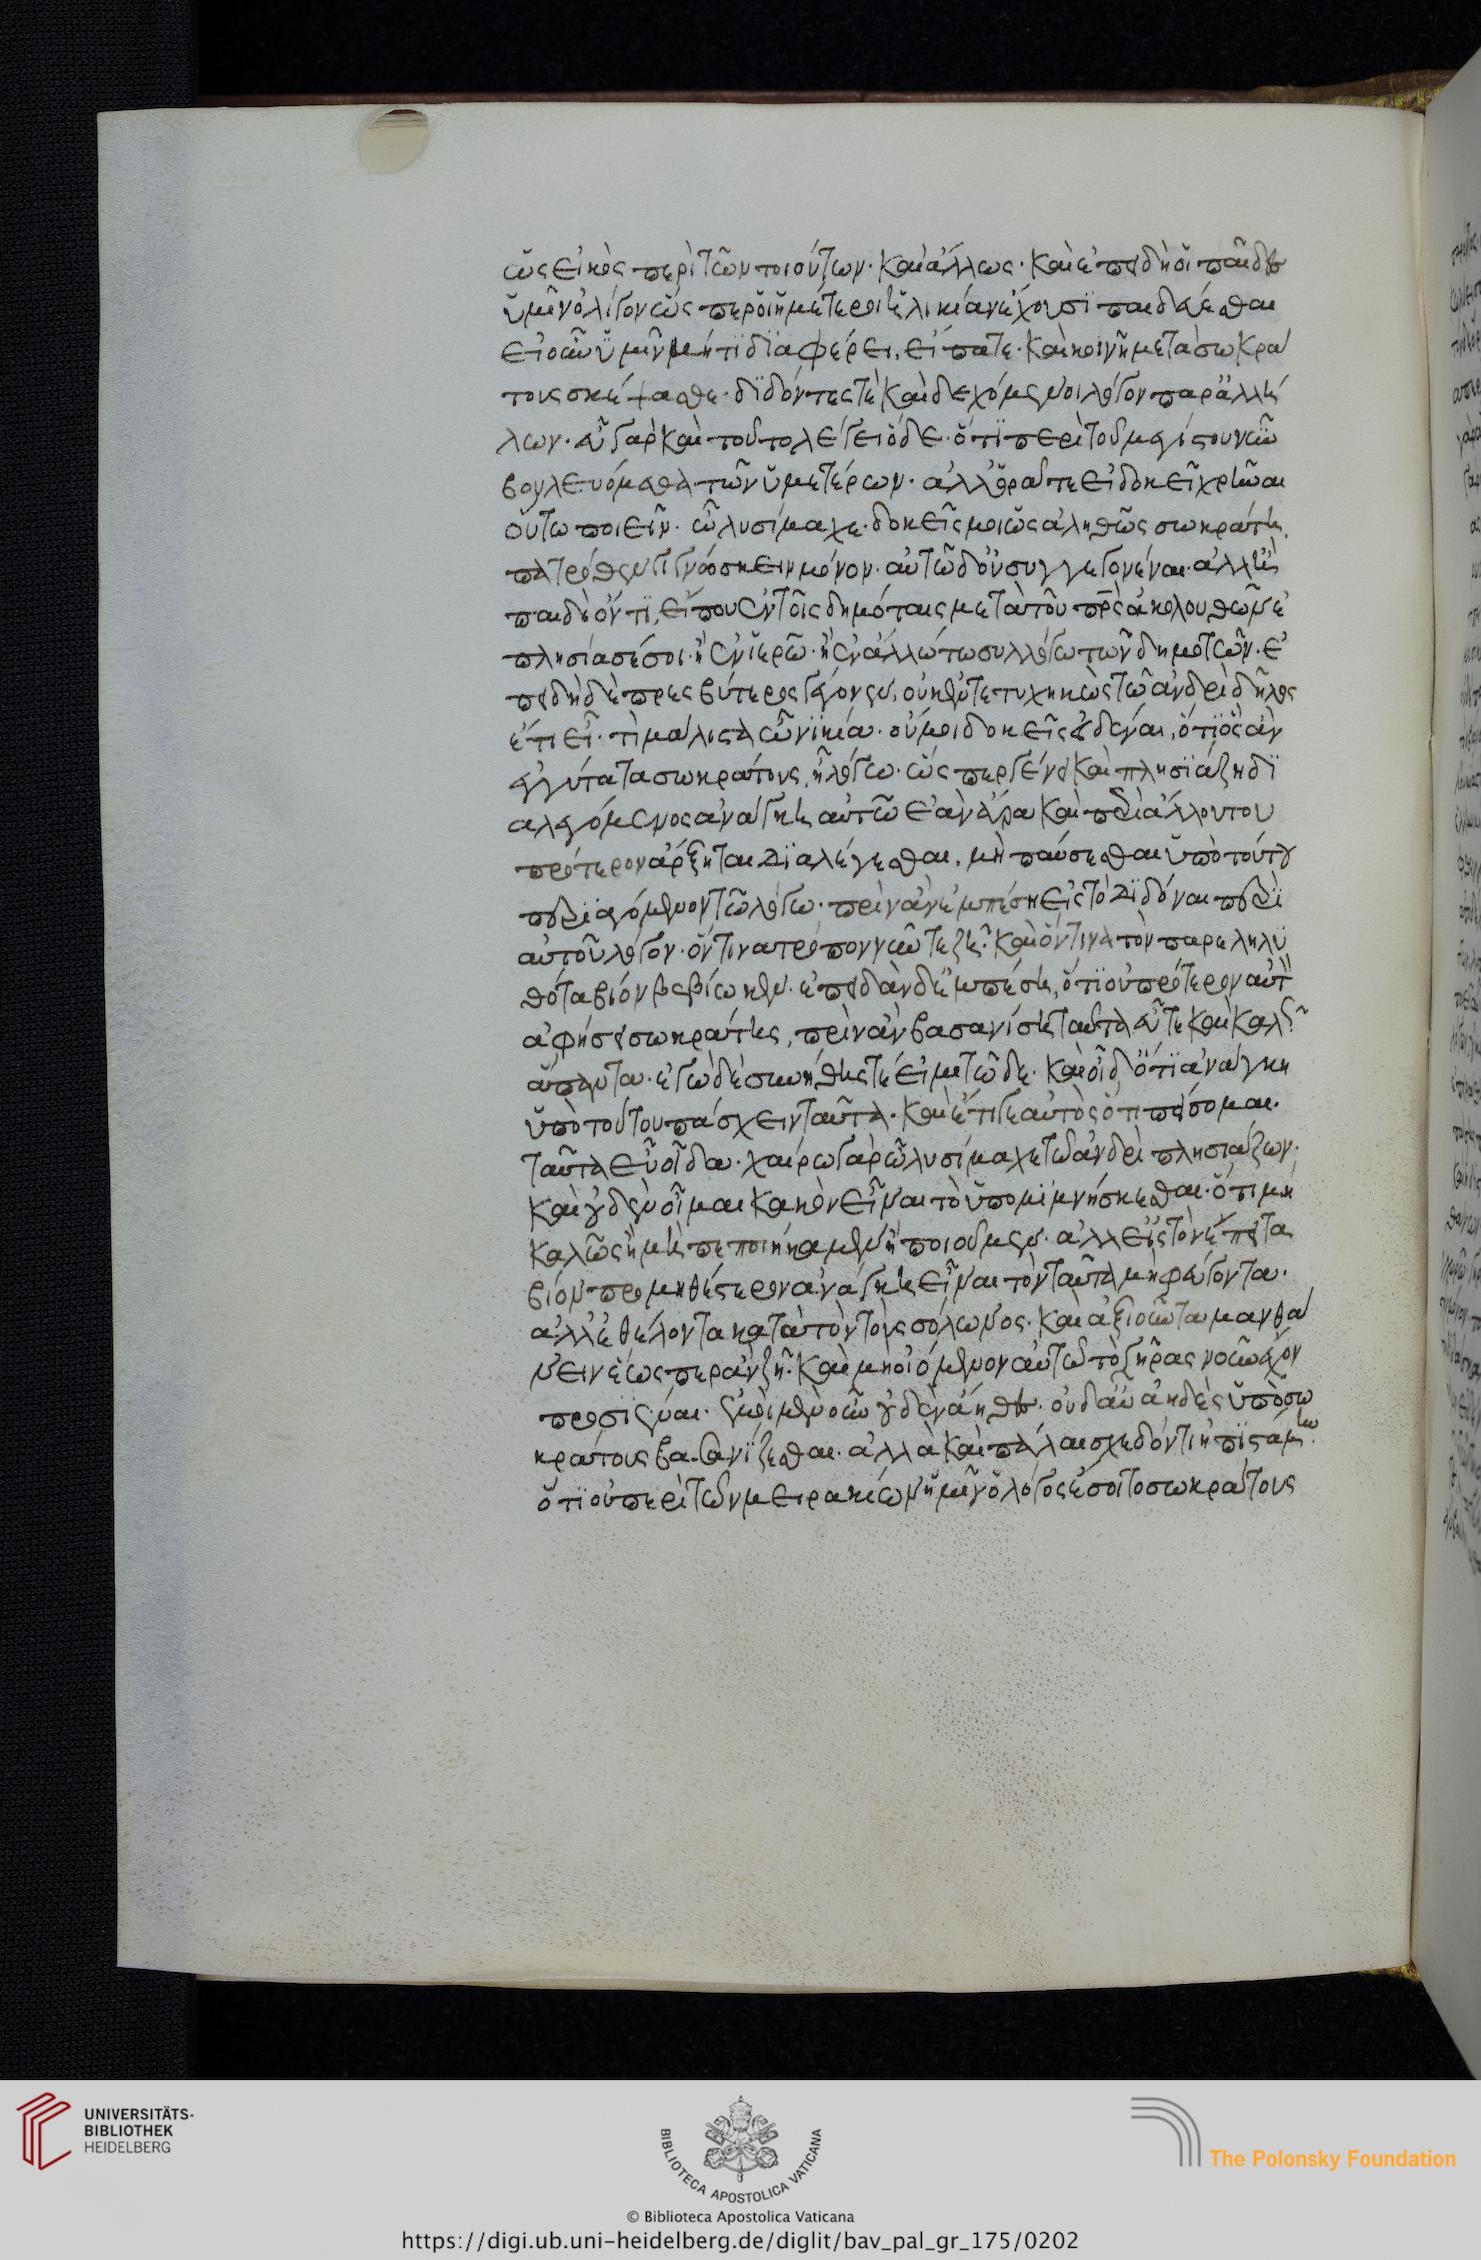 ὡς εἰκὸς περὶ τῶν τοιούτων· καὶ ἄλλως· καὶ ἐπειδὴ οἱ παῖδες
ὑμῖν ὀλίγον ὥς περ οἱ ἡμέτεροι ἡλικίαν ἔχουσι παιδεύεσθαι
εἰ οὖν ὑμῖν μή τι διαφέρει, εἴπατε· καὶ κοινῇ μετὰ σωκρά
τους σκέψασθε· διδόντες τὲ καὶ δεχόμενοι λόγον παρ' ἀλλή
λων· εὖ γὰρ καὶ τοῦτο λέγει ὅδε· ὅτι περὶ τοῦ μεγίστου νῦν
βουλευόμεθα τῶν ὑμετέρων· ἀλλ' ὁρᾶτε εἰ δοκεῖ χρῆναι
οὕτω ποιεῖν· ὦ λυσίμαχε· δοκεῖς μοι ὡς ἀληθῶς σωκράτη
πατρόθεν γιγνώσκειν μόνον· αὐτῷ δ' οὐ συγγεγονέναι· ἀλλ' ἢ
παιδὶ ὄντι, εἴ που ἐν τοῖς δημόταις μετὰ τοῦ πρς ἀκολουθῶν ἐ
πλησίασέ σοι· ἢ ἐν ἱερῷ· ἢ ἐν ἄλλῳ τῳ συλλόγῳ τῶν δημοτῶν· ἐ
πειδὴ δὲ πρεσβύτερος γέγονεν, οὐκ ἐντετυχηκὼς τῷ ἀνδρὶ δῆλος
ἔτι εἶ· τί μάλιστα ὦ νικία· οὔ μοι δοκεῖς εἰδέναι, ὅτι ὃς ἂν
ἐγγύτατα σωκράτους, ἦ λόγῳ· ὥς περ γένει καὶ πλησιάζῃ δι
αλεγόμενος ἀνάγκη αὐτῷ ἐὰν ἄρα καὶ περὶ ἄλλου του
πρότερον ἄρξηται διαλέγεσθαι, μὴ παύεσθαι ὑπὸ τούτου
περιαγόμενον τῷ λόγῳ· πρὶν ἂν ἐμπέσῃ εἰς τὸ διδόναι περὶ
αὑτοῦ λόγον· ὅντινα τρόπον νῦν τε ζῇ· καὶ ὅντινα τὸν παρεληλυ
θότα βίον βεβίωκεν· ἐπειδὰν δ' ἐμπέσῃ, ὅτι οὐ πρότερον αὐτ
ἀφήσει σωκράτης, πρὶν ἂν βασανίσῃ ταῦτα εὖ τε καὶ καλῶς
ἅπαντα· ἐγὼ δὲ συνήθης τέ εἰμι τῷδε· καὶ οἶδ' ὅτι ἀνάγκη
ὑπὸ τούτου πάσχειν ταῦτα· καὶ ἔτι γε αὐτὸς ὅτι πείσομαι·
ταῦτα εὖ οἶδα· χαίρω γὰρ ὦ λυσίμαχε τῷ ἀνδρὶ πλησιάζων·
καὶ οὐδὲν οἶμαι κακὸν εἶναι τὸ ὑπομιμνήσκεσθαι· ὅτι μὴ
καλῶς ἢ μὴ πεποιήκαμεν ἢ ποιοῦμεν· ἀλλ' εἰς τὸν ἔπειτα
βίον προμηθέστερον ἀνάγκη εἶναι τὸν ταῦτα μὴ φεύγοντα·
ἀλλ' ἐθέλοντα κατὰ τὸν τοῦ σόλωνος· καὶ ἀξιοῦντα μανθά
νειν ἕως περ ἂν ζῇ· καὶ μὴ οἰόμενον αὐτῷ τὸ γῆρας νοῦν ἔχον
προσιέναι· ἐμοὶ μὲν οὖν οὐδὲν ἄηθες· οὐδ' αὖ ἀηδὲς ὑπὸ σω
κράτους βασανίζεσθαι· ἀλλὰ καὶ πάλαι σχεδόν τι ἠπιστάμην
ὅτι οὐ περὶ τῶν μειρακίων ἡμῖν ὁ λόγος ἔσοιτο σωκράτους
UNIVERSITÄTS-
BIBLIOTHEK
HEIDELBERG
BIBLIOTECA APOSTOLICA VATICANA
The Polonsky Foundation
© Biblioteca Apostolica Vaticana
https://digi.ub.uni-heidelberg.de/diglit/bav_pal_gr_175/0202